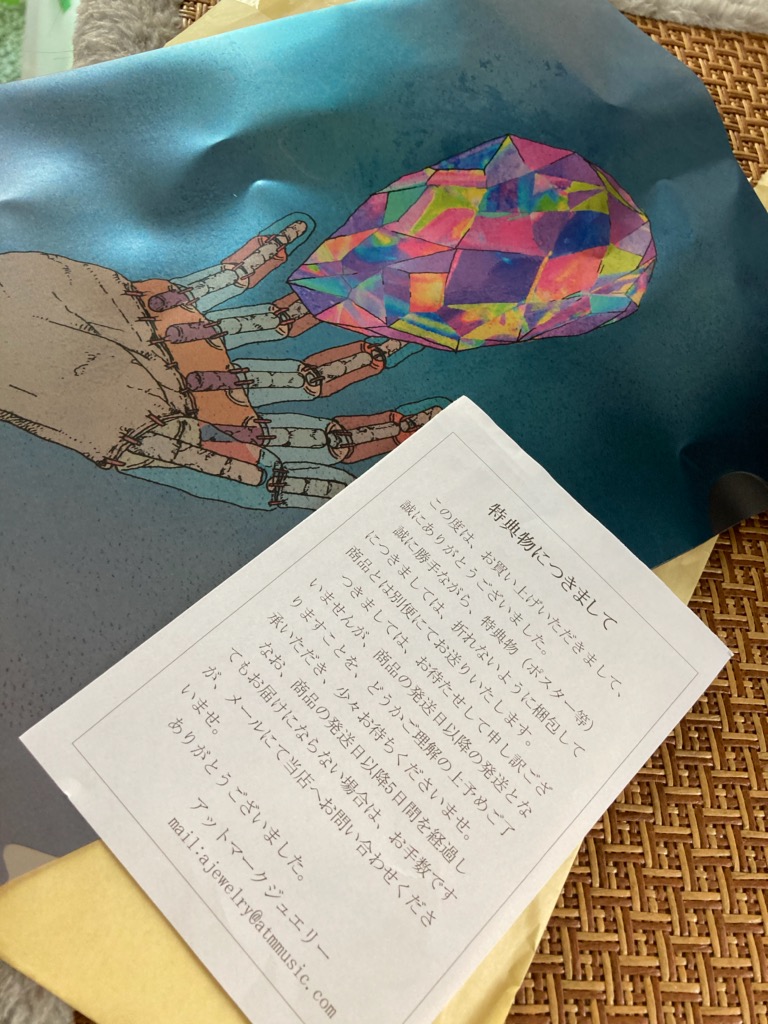 特典物につきまして
この度は、お買い上げいただきまして、
誠にありがとうございました。
誠に勝手ながら、特典物（ポスター等）
につきましては、折れないように梱包して
商品とは別便にてお送りいたします。
つきましては、お待たせして申し訳ござ
いませんが、商品の発送日以降の発送とな
りますことを、どうかご理解の上予めご了
承いただき、少々お待ちくださいませ。
なお、商品の発送日以降5日間を経過し
てもお届けにならない場合は、お手数です
が、メールにて当店へお問い合わせくださ
いませ。
ありがとうございました。
アットマークジュエリー
mail:ajewelry@atmmusic.com